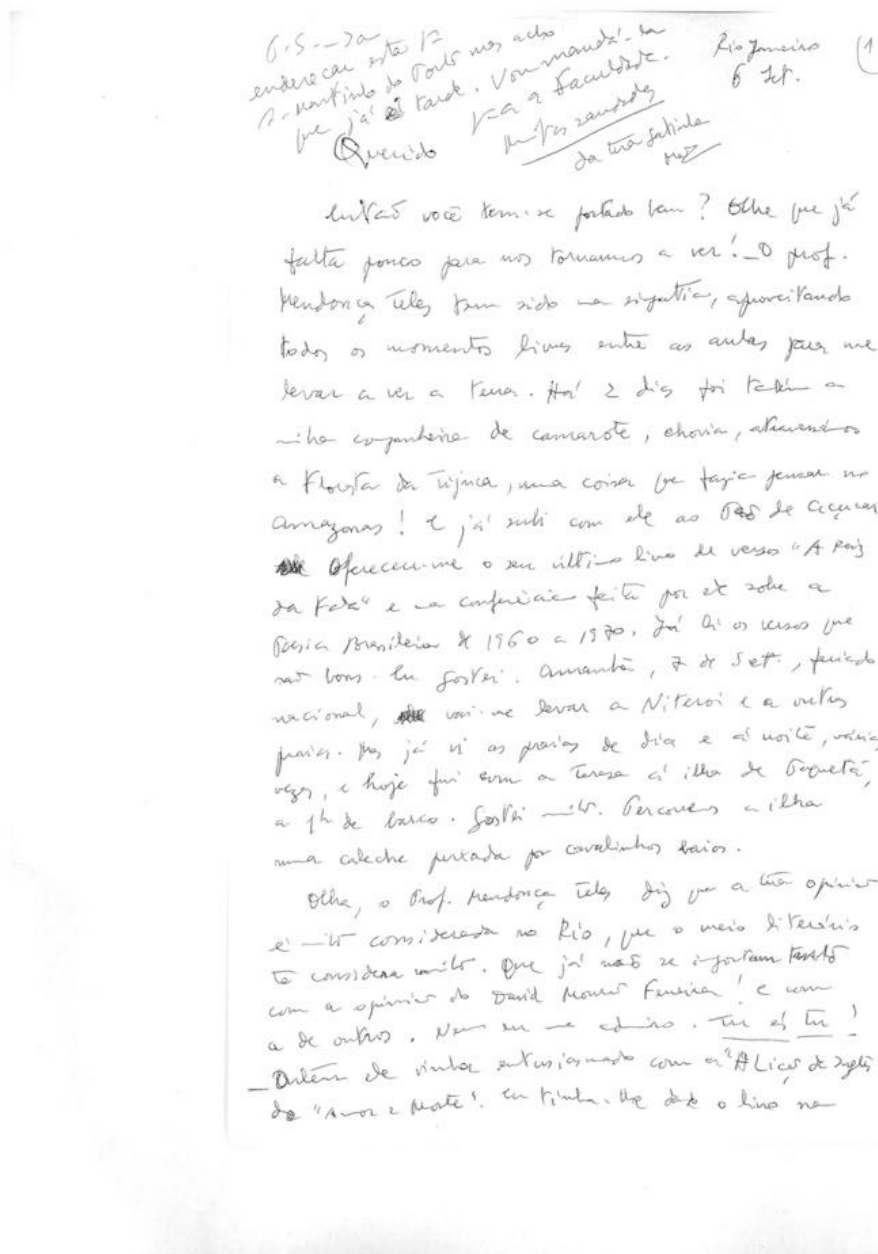 Rio Janeiro (1
6 Set.
endereçar esta pª
S. Martinho do Porto mas acho
que já é tarde. Vou mandá-la
pª a Faculdade.
Mtas saudades
da tua gatinha
Querido
Então você tem-se portado bem? Olhe que já
falta pouco para nos tornarmos a ver! _ O prof.
Mendonça Teles tem sido uma simpatia, aproveitando
todos os momentos livres entre as aulas para me
levar a ver a terra. Há 2 dias foi também a
minha companheira de camarote, chovia, atravessámos
a Floresta da Tijuca, uma coisa que fazia pensar no
Amazonas! E já subi com ele ao Pão de Açucar
Ofereceu-me o seu último livro de versos "A Raiz
da Fala" e uma conferência feita por ele sobre a
Poesia Brasileira de 1960 a 1970. Já li os versos que
são bons. Eu gostei. Amanhã, 7 de Setº, feriado
nacional, vai-me levar a Niteroi e a outras
praias. Mas já vi as praias de dia e à noite, várias
vezes, e hoje fui com a Teresa à ilha de Paquetá,
a 1h de barco. Gostei mtº. Percorremos a ilha
numa caleche puxada por cavalinhos baios.
Olha, o Prof. Mendonça Teles diz que a tua opinião
é mtº considerada no Rio, que o meio literário
te considera muito. Que já não se importam tanto
com a opinião do David Mourão Ferreira! e com
a de outros. Nem eu me admiro. Tu és tu!
_ Ontem ele vinha entusiasmado com a "A Lição de Inglês
do "Amor e Morte". Eu tinha-lhe dado o livro na